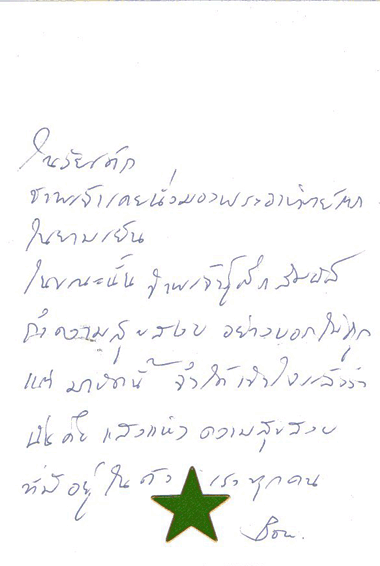 ในวัยเด็ก
ข้าพเจ้าเคยนั่งมองพระอาทิตย์ตก
ในยามเย็น
ในขณะนั้น ข้าพเจ้ารู้สึก สัมผัส
ถึงความสุขสงบ อย่างบอกไม่ถูก
แต่ มาบัดนี้ จึงได้เข้าใจแล้วว่า
นั่นคือ แสงแห่ง ความสุขสงบ
ที่มีอยู่ในตัว เราทุกคน